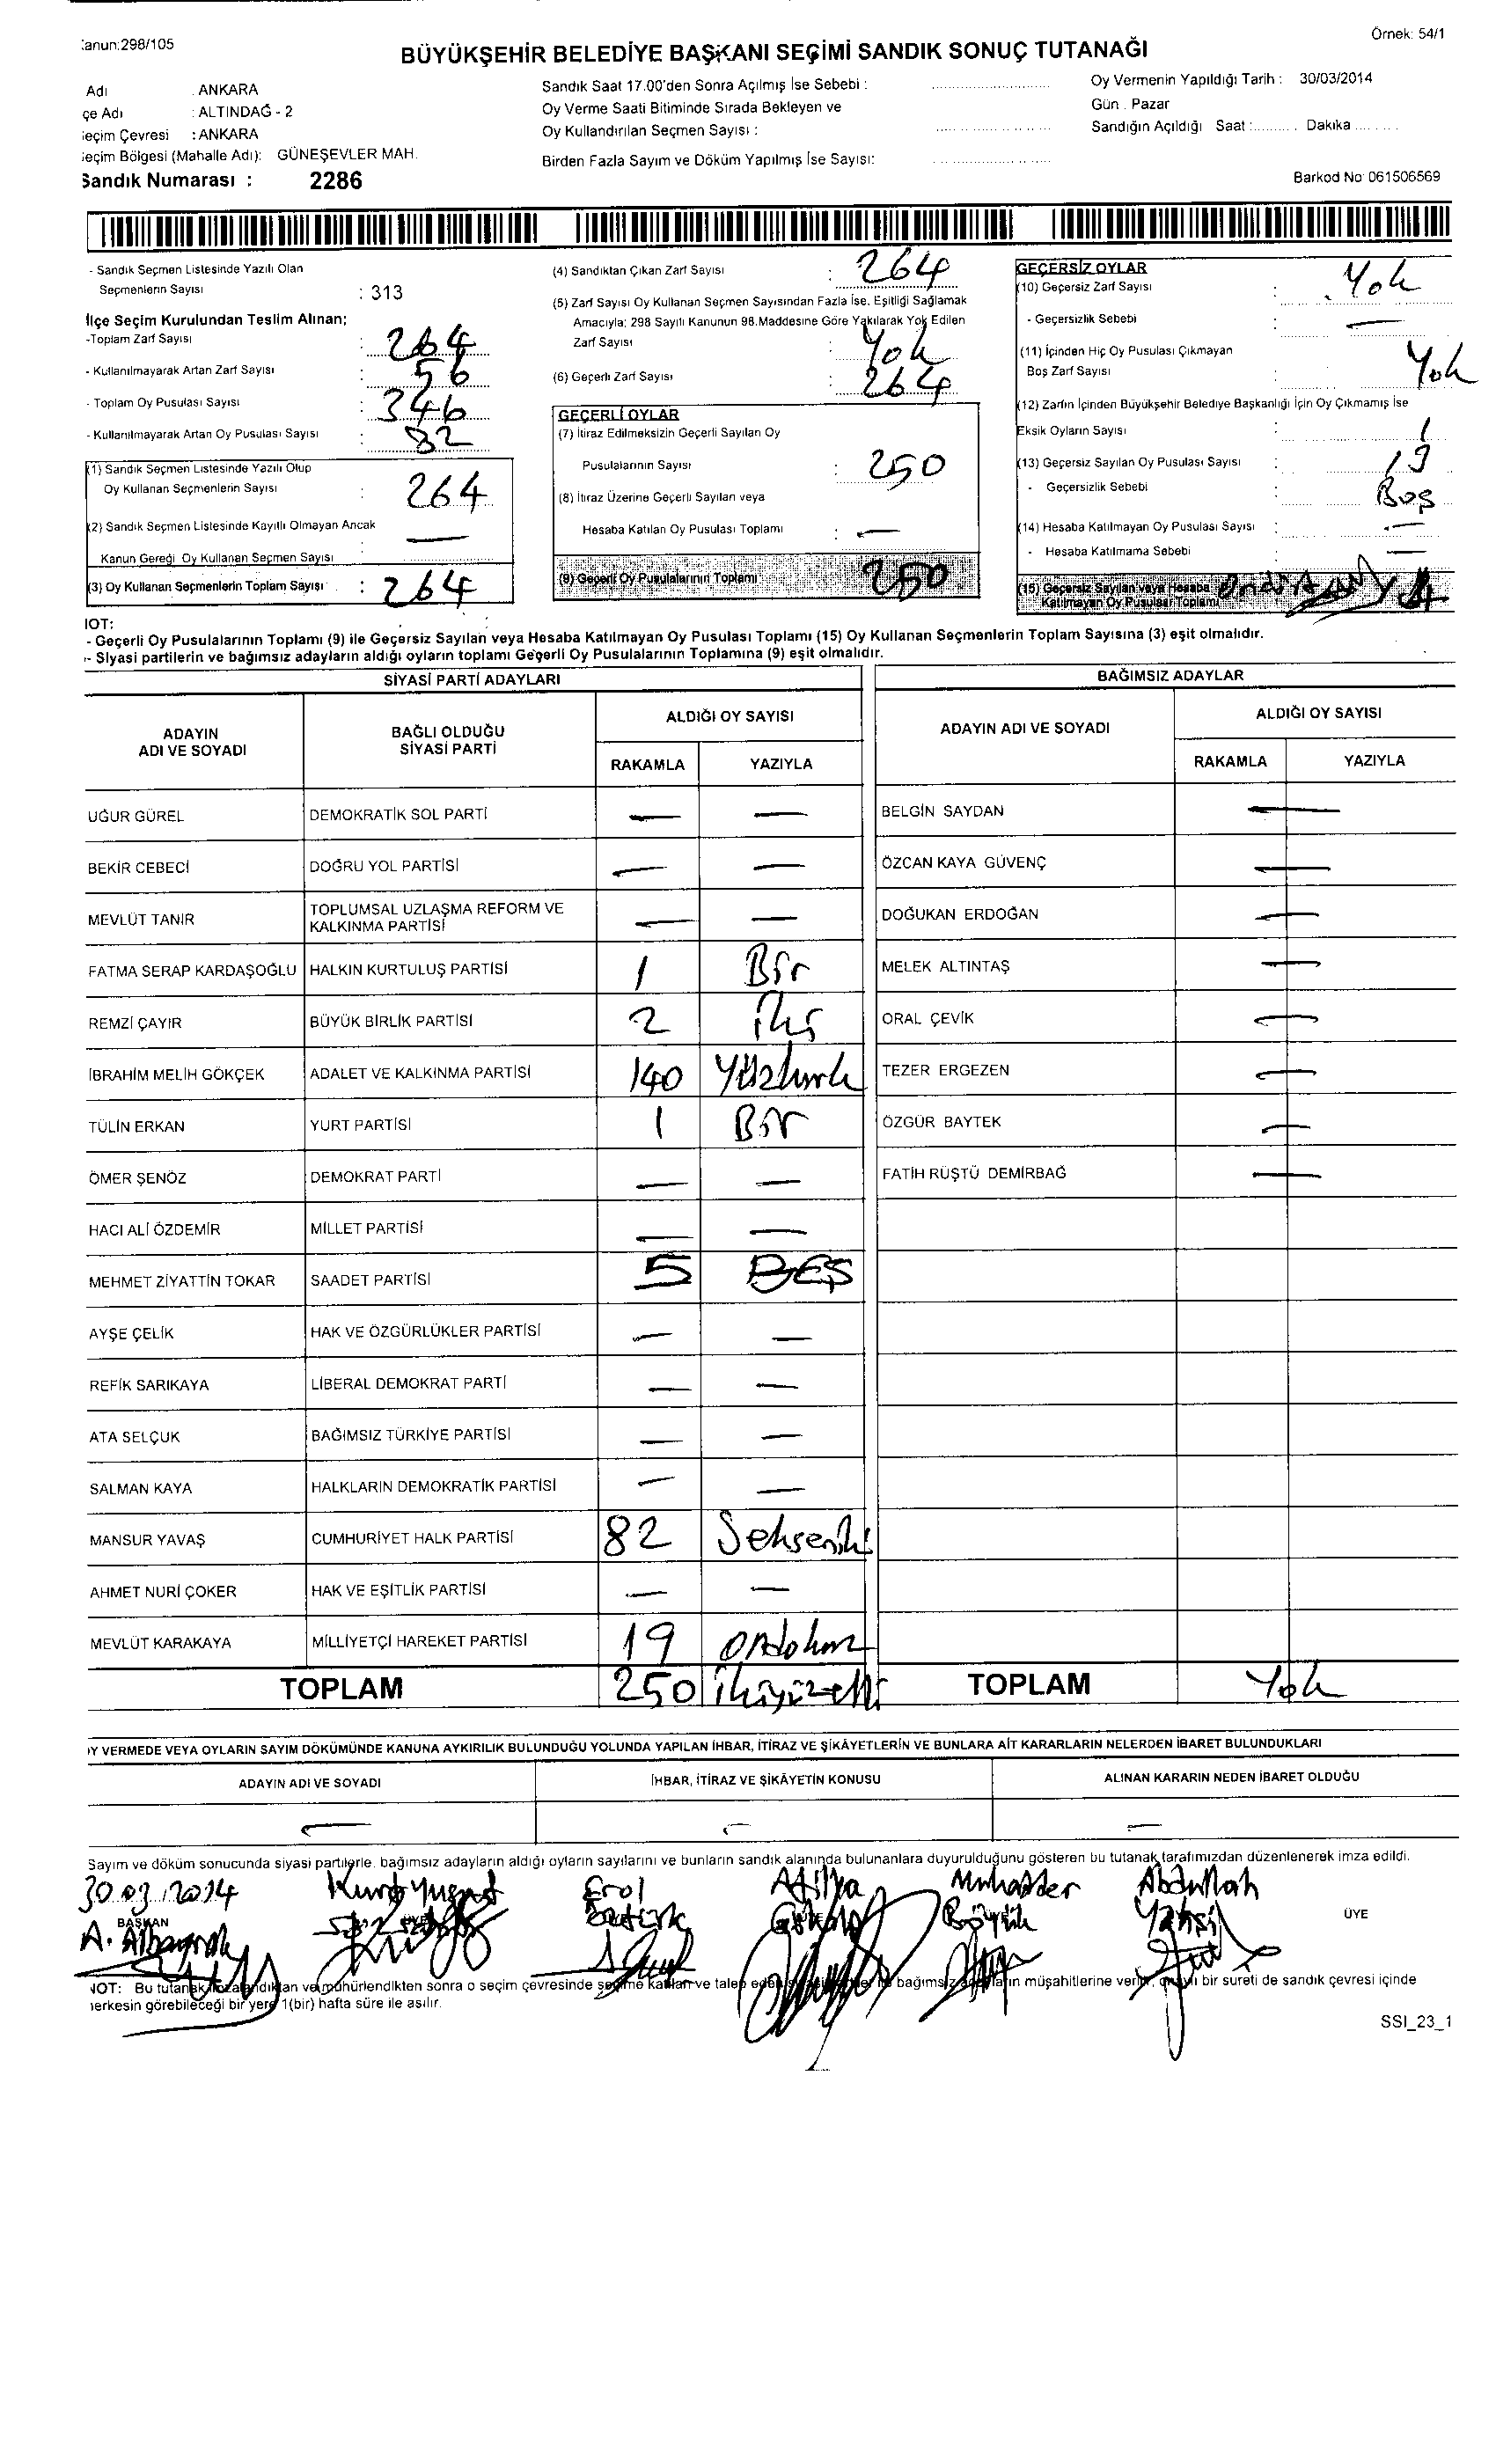 :anun:298/105
Örnek: 54/1
BÜYÜKŞEHİR BELEDİYE BAŞKANI SEÇİMİ SANDIK SONUÇ TUTANAĞI
Adı : ANKARA
çe Adı : ALTINDAĞ - 2
eçim Çevresi : ANKARA
eçim Bölgesi (Mahalle Adı): GÜNEŞEVLER MAH.
Sandık Numarası : 2286
Sandık Saat 17.00'den Sonra Açılmış İse Sebebi :
Oy Verme Saati Bitiminde Sırada Bekleyen ve
Oy Kullandırılan Seçmen Sayısı :
Birden Fazla Sayım ve Döküm Yapılmış İse Sayısı:
Oy Vermenin Yapıldığı Tarih : 30/03/2014
Gün : Pazar
Sandığın Açıldığı Saat :.......... Dakika .........
Barkod No: 061506569
- Sandık Seçmen Listesinde Yazılı Olan
Seçmenlerin Sayısı : 313
İlçe Seçim Kurulundan Teslim Alınan;
-Toplam Zarf Sayısı : 264
- Kullanılmayarak Artan Zarf Sayısı : 56
- Toplam Oy Pusulası Sayısı : 346
- Kullanılmayarak Artan Oy Pusulası Sayısı : 82
(1) Sandık Seçmen Listesinde Yazılı Olup
Oy Kullanan Seçmenlerin Sayısı : 264
(2) Sandık Seçmen Listesinde Kayıtlı Olmayan Ancak
Kanun Gereği Oy Kullanan Seçmen Sayısı —
(3) Oy Kullanan Seçmenlerin Toplam Sayısı : 264
(4) Sandıktan Çıkan Zarf Sayısı : 264
(5) Zarf Sayısı Oy Kullanan Seçmen Sayısından Fazla İse, Eşitliği Sağlamak
Amacıyla; 298 Sayılı Kanunun 98.Maddesine Göre Yakılarak Yok Edilen
Zarf Sayısı : Yok
(6) Geçerli Zarf Sayısı : 264
GEÇERLİ OYLAR
(7) İtiraz Edilmeksizin Geçerli Sayılan Oy
Pusulalarının Sayısı : 250
(8) İtiraz Üzerine Geçerli Sayılan veya
Hesaba Katılan Oy Pusulası Toplamı : —
(9) Geçerli Oy Pusulalarının Toplamı 250
GEÇERSİZ OYLAR
(10) Geçersiz Zarf Sayısı : Yok
- Geçersizlik Sebebi : —
(11) İçinden Hiç Oy Pusulası Çıkmayan
Boş Zarf Sayısı : Yok
(12) Zarfın İçinden Büyükşehir Belediye Başkanlığı İçin Oy Çıkmamış İse
Eksik Oyların Sayısı : 1
(13) Geçersiz Sayılan Oy Pusulası Sayısı : 13
- Geçersizlik Sebebi : Boş
(14) Hesaba Katılmayan Oy Pusulası Sayısı : —
- Hesaba Katılmama Sebebi : —
(15) Geçersiz Sayılan veya Hesaba
Katılmayan Oy Pusulası Toplamı
IOT:
- Geçerli Oy Pusulalarının Toplamı (9) ile Geçersiz Sayılan veya Hesaba Katılmayan Oy Pusulası Toplamı (15) Oy Kullanan Seçmenlerin Toplam Sayısına (3) eşit olmalıdır.
- Siyasi partilerin ve bağımsız adayların aldığı oyların toplamı Geçerli Oy Pusulalarının Toplamına (9) eşit olmalıdır.
SİYASİ PARTİ ADAYLARI
BAĞIMSIZ ADAYLAR
ADAYIN ADI VE SOYADI
BAĞLI OLDUĞU SİYASİ PARTİ
ALDIĞI OY SAYISI
RAKAMLA YAZIYLA
ADAYIN ADI VE SOYADI
ALDIĞI OY SAYISI
RAKAMLA YAZIYLA
UĞUR GÜREL DEMOKRATİK SOL PARTİ — — BELGİN SAYDAN —
BEKİR CEBECİ DOĞRU YOL PARTİSİ — — ÖZCAN KAYA GÜVENÇ —
MEVLÜT TANIR TOPLUMSAL UZLAŞMA REFORM VE KALKINMA PARTİSİ — — DOĞUKAN ERDOĞAN —
FATMA SERAP KARDAŞOĞLU HALKIN KURTULUŞ PARTİSİ 1 Bir MELEK ALTINTAŞ —
REMZİ ÇAYIR BÜYÜK BİRLİK PARTİSİ 2 iki ORAL ÇEVİK —
İBRAHİM MELİH GÖKÇEK ADALET VE KALKINMA PARTİSİ 140 Yüzkırk TEZER ERGEZEN —
TÜLİN ERKAN YURT PARTİSİ 1 Bir ÖZGÜR BAYTEK —
ÖMER ŞENÖZ DEMOKRAT PARTİ — — FATİH RÜŞTÜ DEMİRBAĞ —
HACI ALİ ÖZDEMİR MİLLET PARTİSİ — —
MEHMET ZİYATTİN TOKAR SAADET PARTİSİ 5 BEŞ
AYŞE ÇELİK HAK VE ÖZGÜRLÜKLER PARTİSİ — —
REFİK SARIKAYA LİBERAL DEMOKRAT PARTİ — —
ATA SELÇUK BAĞIMSIZ TÜRKİYE PARTİSİ — —
SALMAN KAYA HALKLARIN DEMOKRATİK PARTİSİ — —
MANSUR YAVAŞ CUMHURİYET HALK PARTİSİ 82 Sekseniki
AHMET NURİ ÇOKER HAK VE EŞİTLİK PARTİSİ — —
MEVLÜT KARAKAYA MİLLİYETÇİ HAREKET PARTİSİ 19 ondokuz
TOPLAM 250 ikiyüzelli TOPLAM Yok
)Y VERMEDE VEYA OYLARIN SAYIM DÖKÜMÜNDE KANUNA AYKIRILIK BULUNDUĞU YOLUNDA YAPILAN İHBAR, İTİRAZ VE ŞİKÂYETLERİN VE BUNLARA AİT KARARLARIN NELERDEN İBARET BULUNDUKLARI
ADAYIN ADI VE SOYADI İHBAR, İTİRAZ VE ŞİKÂYETİN KONUSU ALINAN KARARIN NEDEN İBARET OLDUĞU
— — —
Sayım ve döküm sonucunda siyasi partilerle, bağımsız adayların aldığı oyların sayılarını ve bunların sandık alanında bulunanlara duyurulduğunu gösteren bu tutanak tarafımızdan düzenlenerek imza edildi.
30.03.2014 Erol Atilla Abdullah
BAŞKAN ÜYE
NOT: Bu tutanak ve mühürlendikten sonra o seçim çevresinde seçime katılan ve talep eden bağımsız adayların müşahitlerine verilir, onaylı bir sureti de sandık çevresi içinde
herkesin görebileceği bir yere 1(bir) hafta süre ile asılır.
SSI_23_1